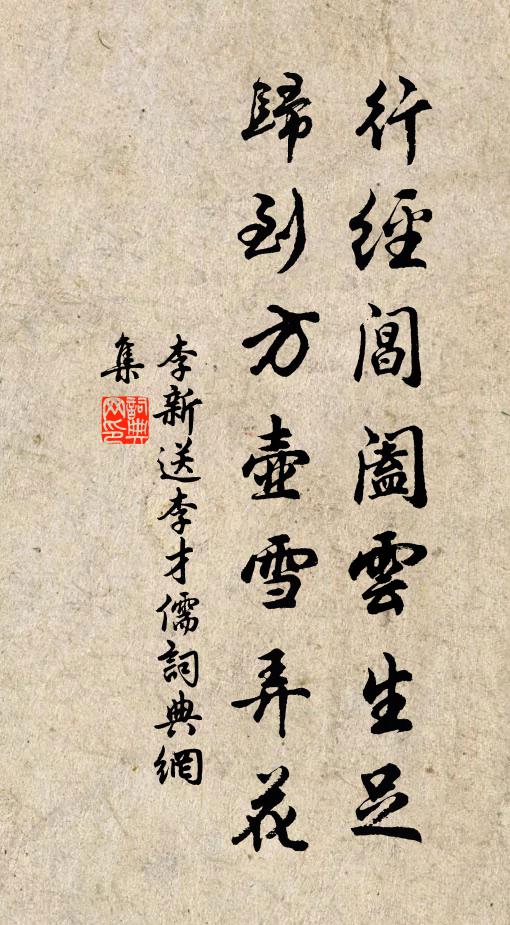 行經閶闔雲生足
歸到方壺雪弄花
李新送李才儒詞典網
集
詞典
網印